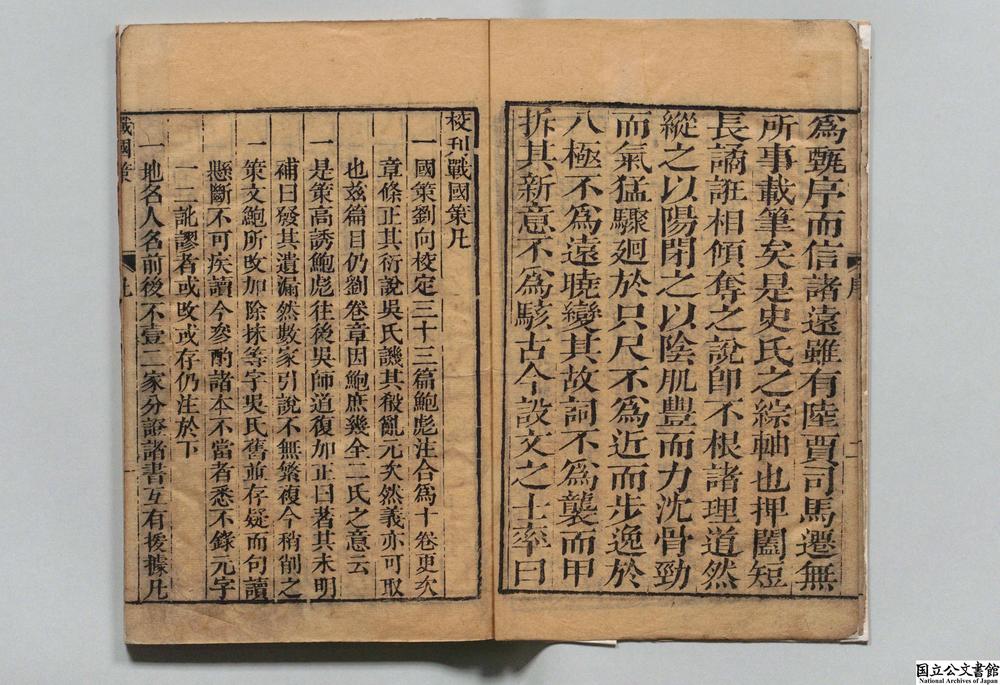 爲甎序而信諸遠雖有陸賈司馬遷無
所事載筆矣是史氏之綜軸也押闔短
長譎誑相傾奪之說卽不根諸理道然
縱之以陽閉之以陰肌豐而力沈骨勁
而氣猛驟廻於只尺不爲近而步逸於
八極不爲遠曉變其故詞不爲襲而甲
拆其新意不爲駭古今設文之士率曰
序
校刊戰國策凡
一國策劉向校定三十三篇鮑彪注合爲十卷更次
章條正其衍說吳氏譏其殽亂元次然義亦可取
也茲篇目仍劉卷章因鮑庶幾全二氏之意云
一是策高誘鮑彪往後吳師道復加正曰著其未明
補曰發其遺漏然數家引說不無繁複今稍削之
一策文鮑所攺加除抹等字吳氏舊並存疑而句讀
懸斷不可疾讀今參酌諸本不當者悉不錄元字
一二訛謬者或攺或存仍注於下
一地名人名前後不壹二家分證諸書互有援據凡
戰國策
凡
一
国立公文書館
National Archives of Japan